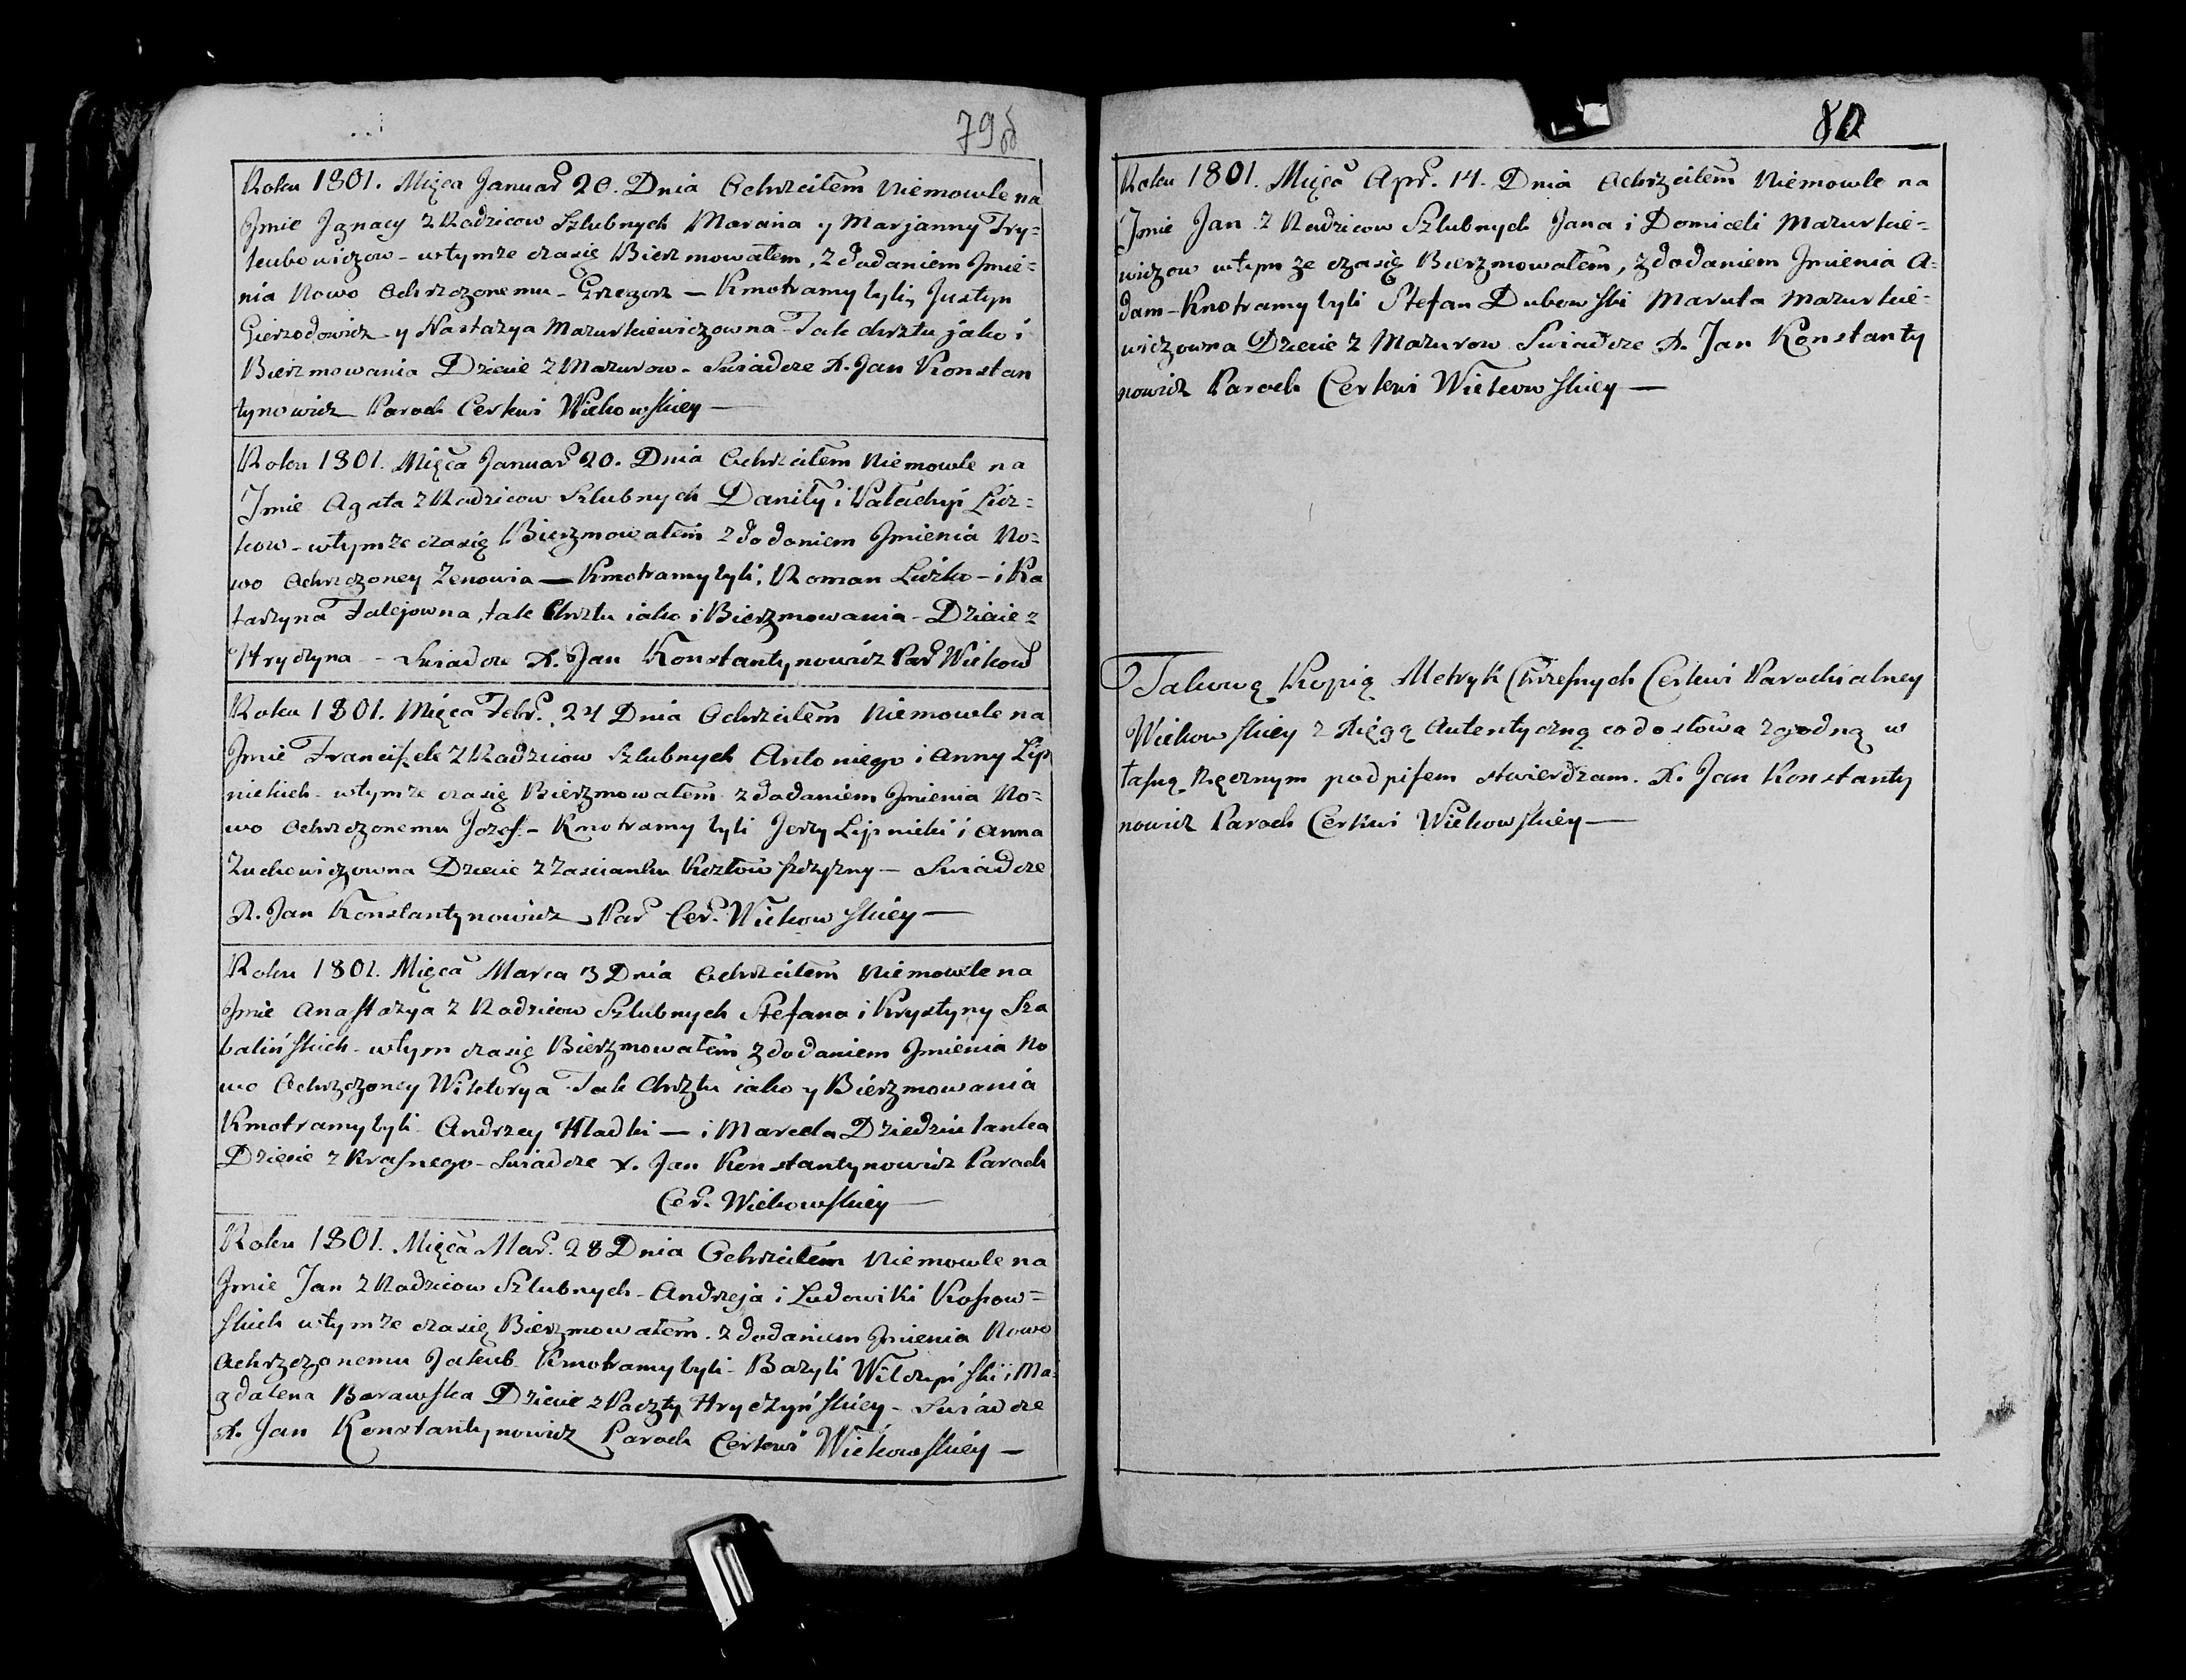 79об
Roku 1801. Mięca Januar 20. Dnia Ochrzciłem Niemowle na
Jmie Jgnacy z Rodzicow Szlubnych Marcina y Marjanny Try=
kubowiczow - w tymże czasię Bierzmowałem, z dodaniem Jmie=
nia Nowo Ochrzczonemu - Grzegorz — Kmotramy byli, Justyn
Gierzodowicz y Nastazya Mazurkiewiczowna - Tak chrztu jako i
Bierzmowania Dziecie z Mazurow - Swiadcze X. Jan Konstan
tynowicz Paroch Cerkwi Wickowskiey —
Roku 1801. Mięca Januar 20. Dnia Ochrzciłem Niemowle na
Jmie Agata z Rodzicow Szlubnych Daniły i Pałachyi Licz=
kow - w tymże czasię Bierzmowałem z dodaniem Jmienia No=
wo Ochrzczoney Zenowia — Kmotramy byli, Roman Liczko - i Ka
tarzyna Falejowna, tak Chrztu iako i Bierzmowania - Dziecie z
Hryczyna - Swiadcze X. Jan Konstantynowicz Par Wickow
Roku 1801. Mięca Febr. 24 Dnia Ochrzciłem Niemowle na
Jmie Franciszek z Rodzicow Szlubnych Antoniego i Anny Lip
nickich - w tymże czasię Bierzmowałem z dodaniem Jmienia No=
wo Ochrzczonemu Jozef - Kmotramy byli Jerzy Lipnicki i Anna
Zuchowiczowna Dziecie z Zascianku Kozłowszczyzny — Swiadcze
X. Jan Konstantynowicz Par Cer. Wickowskiey —
Roku 1801. Mięca Marca 3 Dnia Ochrzciłem Niemowle na
Jmie Anastazya z Rodzicow Szlubnych Stefana i Krystyny Sza
balińskich - w tym czasię Bierzmowałem z dodaniem Jmienia No
wo Ochrzczoney Wiktorya - Tak Chrztu iako y Bierzmowania
Kmotramy byli - Andrzey Hładki — i Marcela Dziedziulanka
Dziecie z Krasnego - Swiadcze X. Jan Konstantynowicz Paroch
Cer. Wickowskiey —
Roku 1801. Mięca Mar. 28 Dnia Ochrzciłem Niemowle na
Jmie Jan z Rodzicow Szlubnych - Andrzeja i Ludowiki Kossow=
skich w tymże czasię Bierzmowałem. z dodaniem Jmienia Nowo
Ochrzczonemu Jakub - Kmotramy byli - Bazyli Wilczyński i Ma=
gdalena Borawska Dziecie z Poczty Hryczyńskiey - Swiadcze
X. Jan Konstantynowicz Paroch Cerkwi Wickowskiey —
80
Roku 1801. Mięca Apr. 14. Dnia Ochrzciłem Niemowle na
Jmie Jan z Rodzicow Szlubnych Jana i Domiceli Mazurkie=
wiczow w tym ze czasię Bierzmowałem, z dodaniem Jmienia A=
dam - Kmotramy byli Stefan Dubowski Maruta Mazurkie=
wiczowna Dziecie z Mazurow Swiadcze X. Jan Konstanty
nowicz Paroch Cerkwi Wickowskiey —
Takową Kopią Metryk Chrzesnych Cerkwi Parochialney
Wickowskiey z Xięgą Autentyczną co do słowa zgodną w
łasną Ręcznym podpisem stwierdzam. X. Jan Konstanty
nowicz Paroch Cerkwi Wickowskiey —